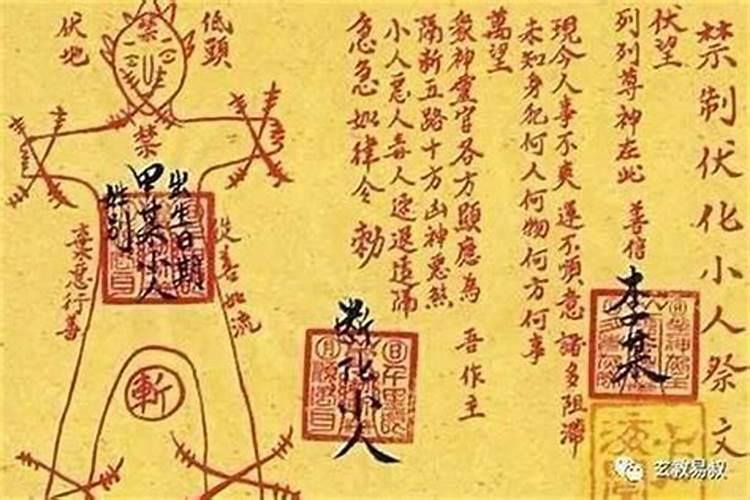 禁制伏化小人祭文
伏望
列列尊神在此 善信
李某
現今人事不爽運不順意諸多阻滯
未知身犯何人何物何方何事
萬望
眾神靈官各方顯應為 吾作主
隔斬五路十方凶神惡煞
小人惡人毒人速退遠隔
急急如律令 勅
斷化小人
低頭
伏地
禁
禁
出生日期
甲某小人
性别
從善如流
棄惡行善
斬
玄教易叔